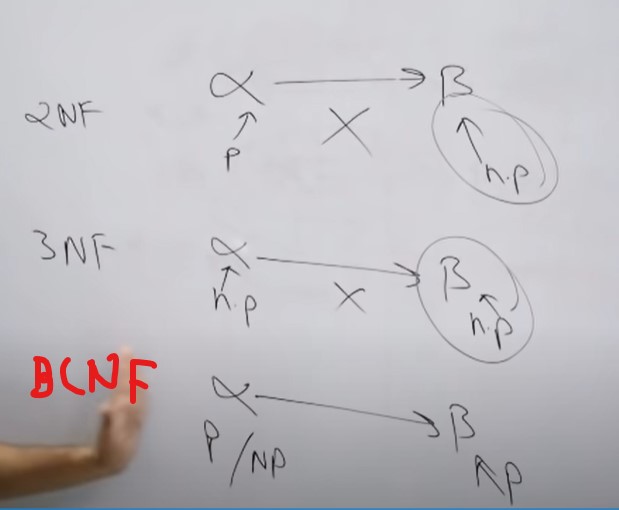 2NF α → β
p ↑ X ↑ n.p
3NF α → β
n.p ↑ X ↑ n.p
BCNF α → β
P/NP ↑ P